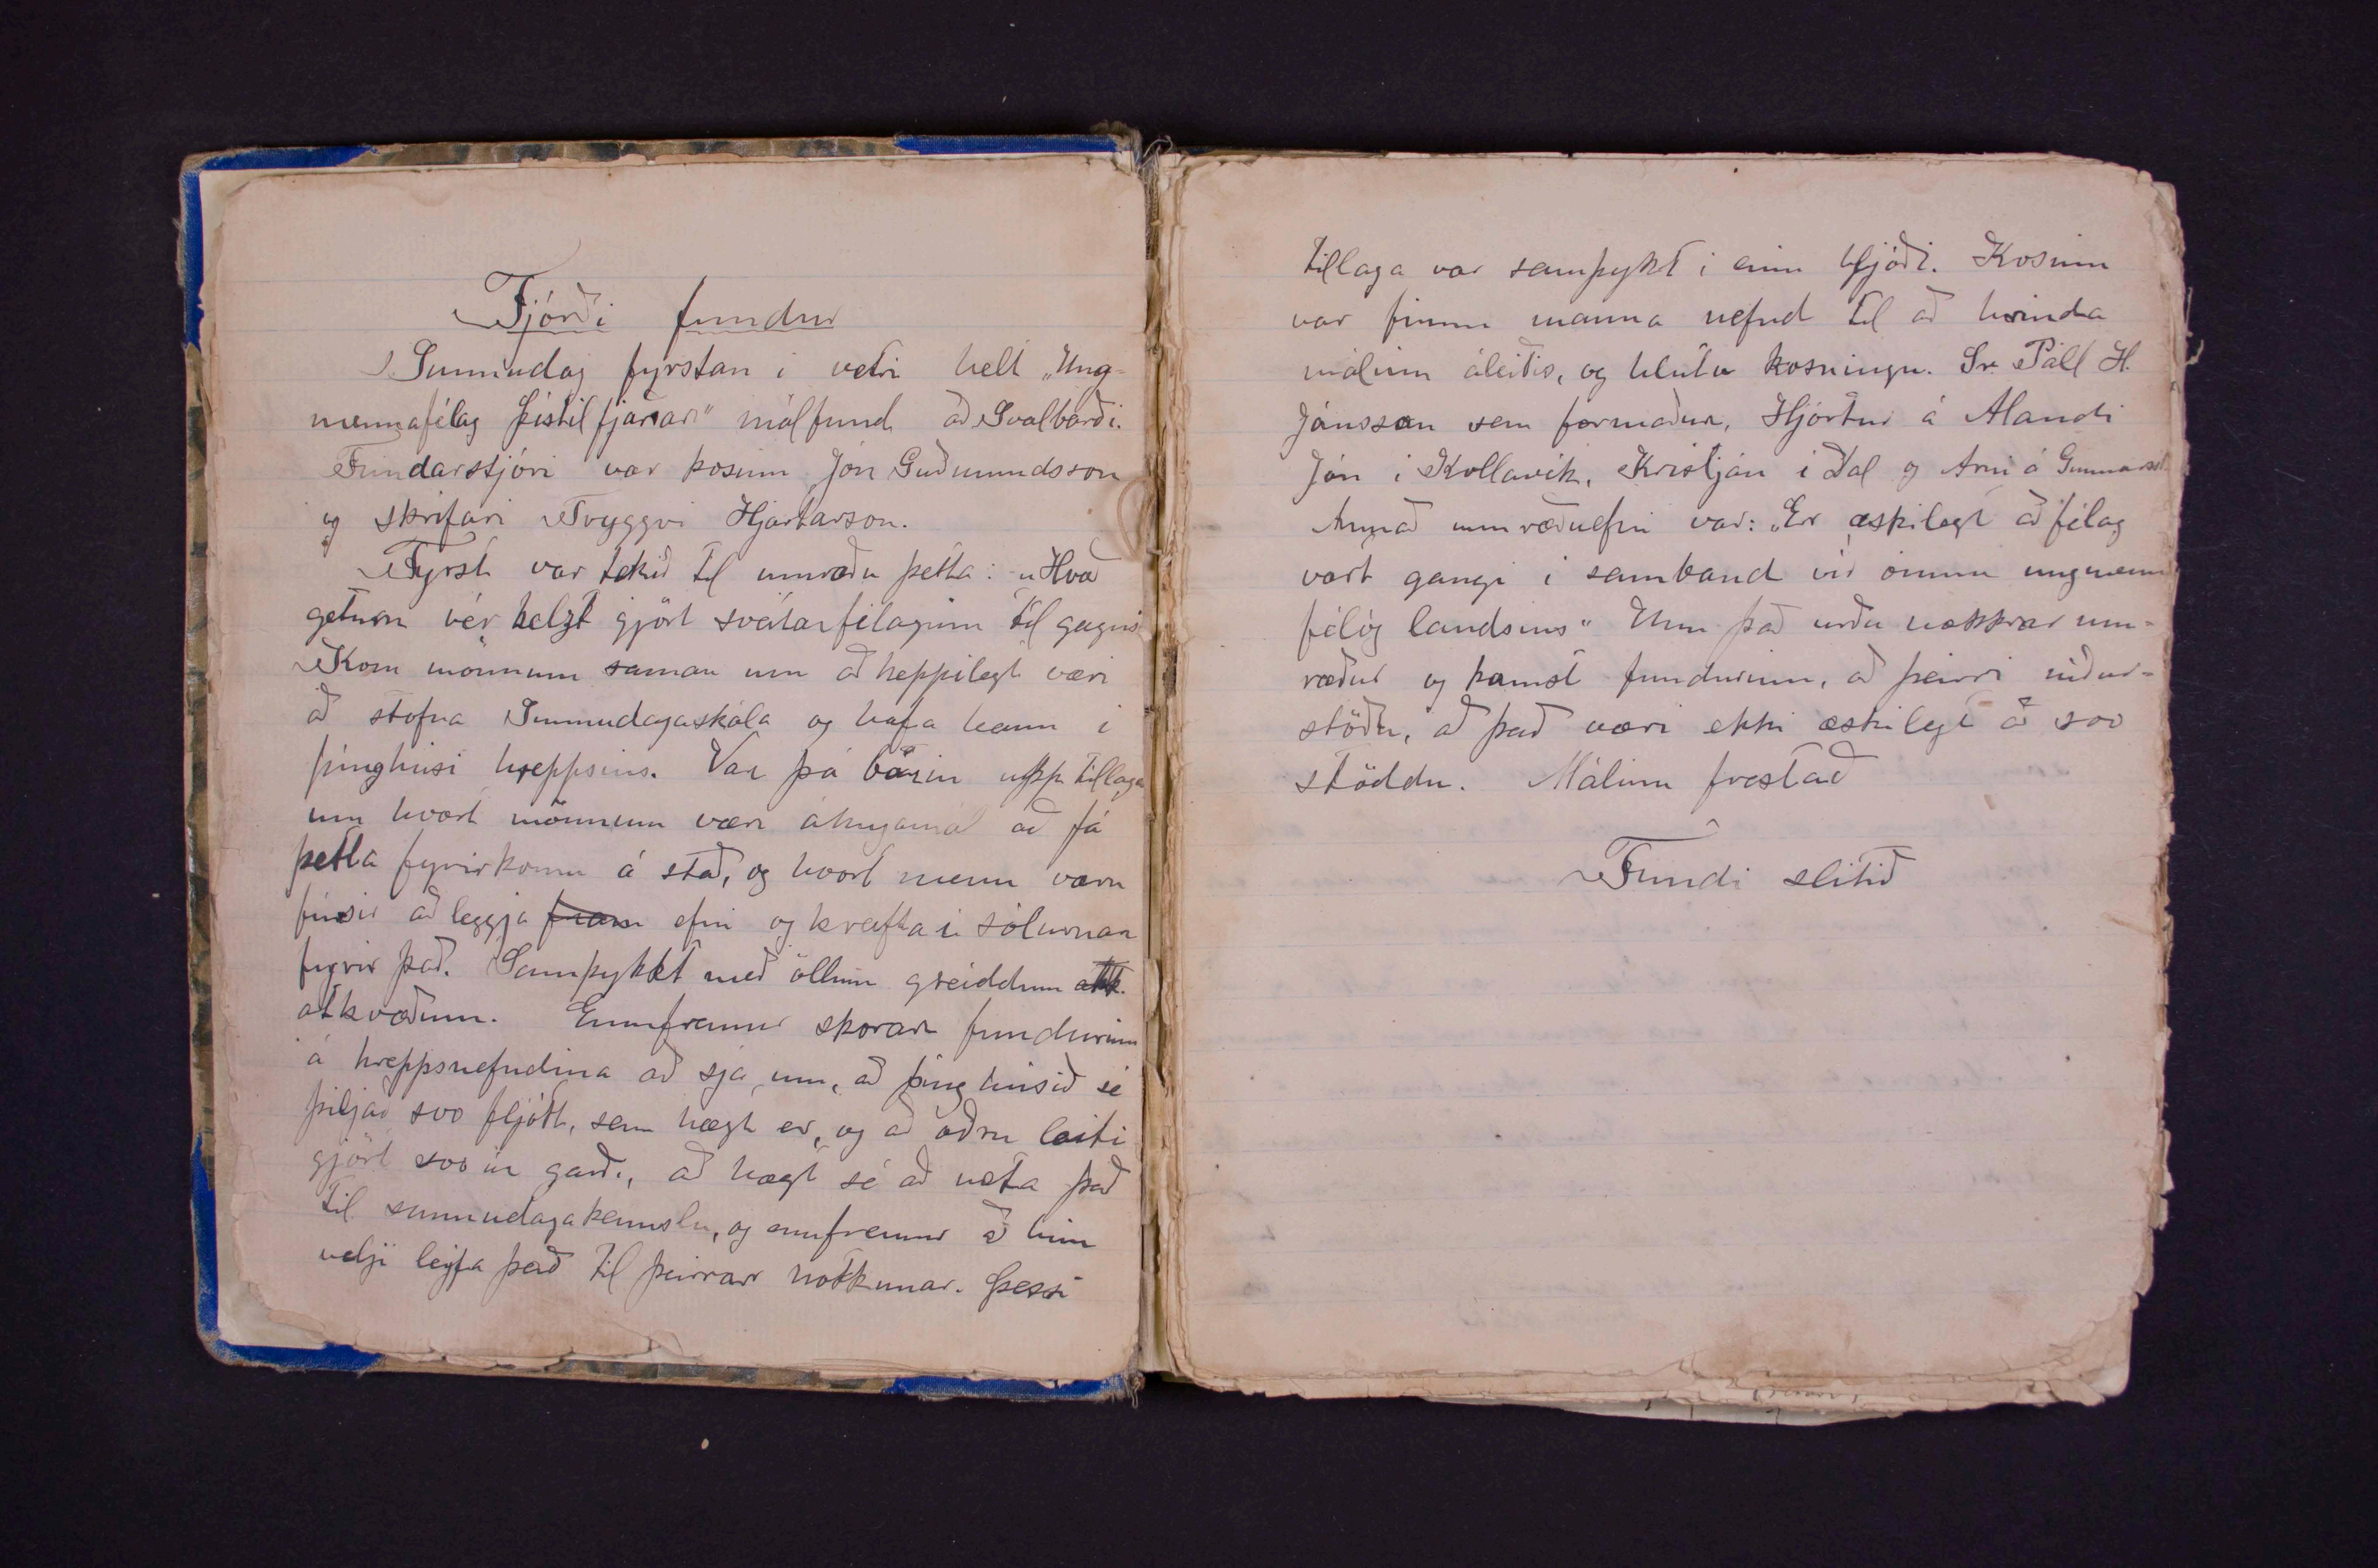 Fjórði fundur
Sunnudag fyrstan í vetri helt „Ung-
mennafélag Þistilfjarðar" málfund að Svalbarði.
Fundarstjóri var kosinn Jón Guðmundsson
og skrifari Tryggvi Hjartarson.
Fyrst var tekið til umræðu þetta: „Hvað
getum vér helzt gjört sveitarfélaginu til gagns
Kom mönnum saman um að heppilegt væri
að stofna Sunnudagaskóla og hafa hann í
þinghúsi hreppsins. Var þá borin upp tillaga
um hvort mönnum væri áhugamál að fá
þetta fyrirkomu á stað, og hvort menn væru
fúsir að leggja fram efni og krafta í sölurnar
fyrir það. Samþykkt með öllum greiddum atk.
atkvæðum. Ennfremur skorar fundurinn
á hreppsnefndina að sjá um, að þinghúsið sé
þiljað svo fljótt, sem hægt er, og að öðru leiti
gjört svo úr garði, að hægt sé að nota það
til sunnudagakennslu, og ennfremur að hún
velji leyfa það til þeirrar notkunar. Þessi
tillaga var samþykt í einu hljóði. Kosinn
var fimm manna nefnd til að hrinda
málinu áleiðis, og hlutu kosningu. Sr. Páll H.
Jónsson sem formaður, Hjörtur á Alandi
Jón í Kollavík, Kristján í Dal og Arni á Gunnarsst.
Annað umræðuefni var: „Er æskilegt að félag
vort gangi í samband við önnur ungmenna
félög landsins" Um það urðu nokkrar um-
ræður og komst fundurinn, að þeirri niður-
stöðu, að það væri ekki æskilegt að svo
stöddu. Málinu frestað
Fundi slitið